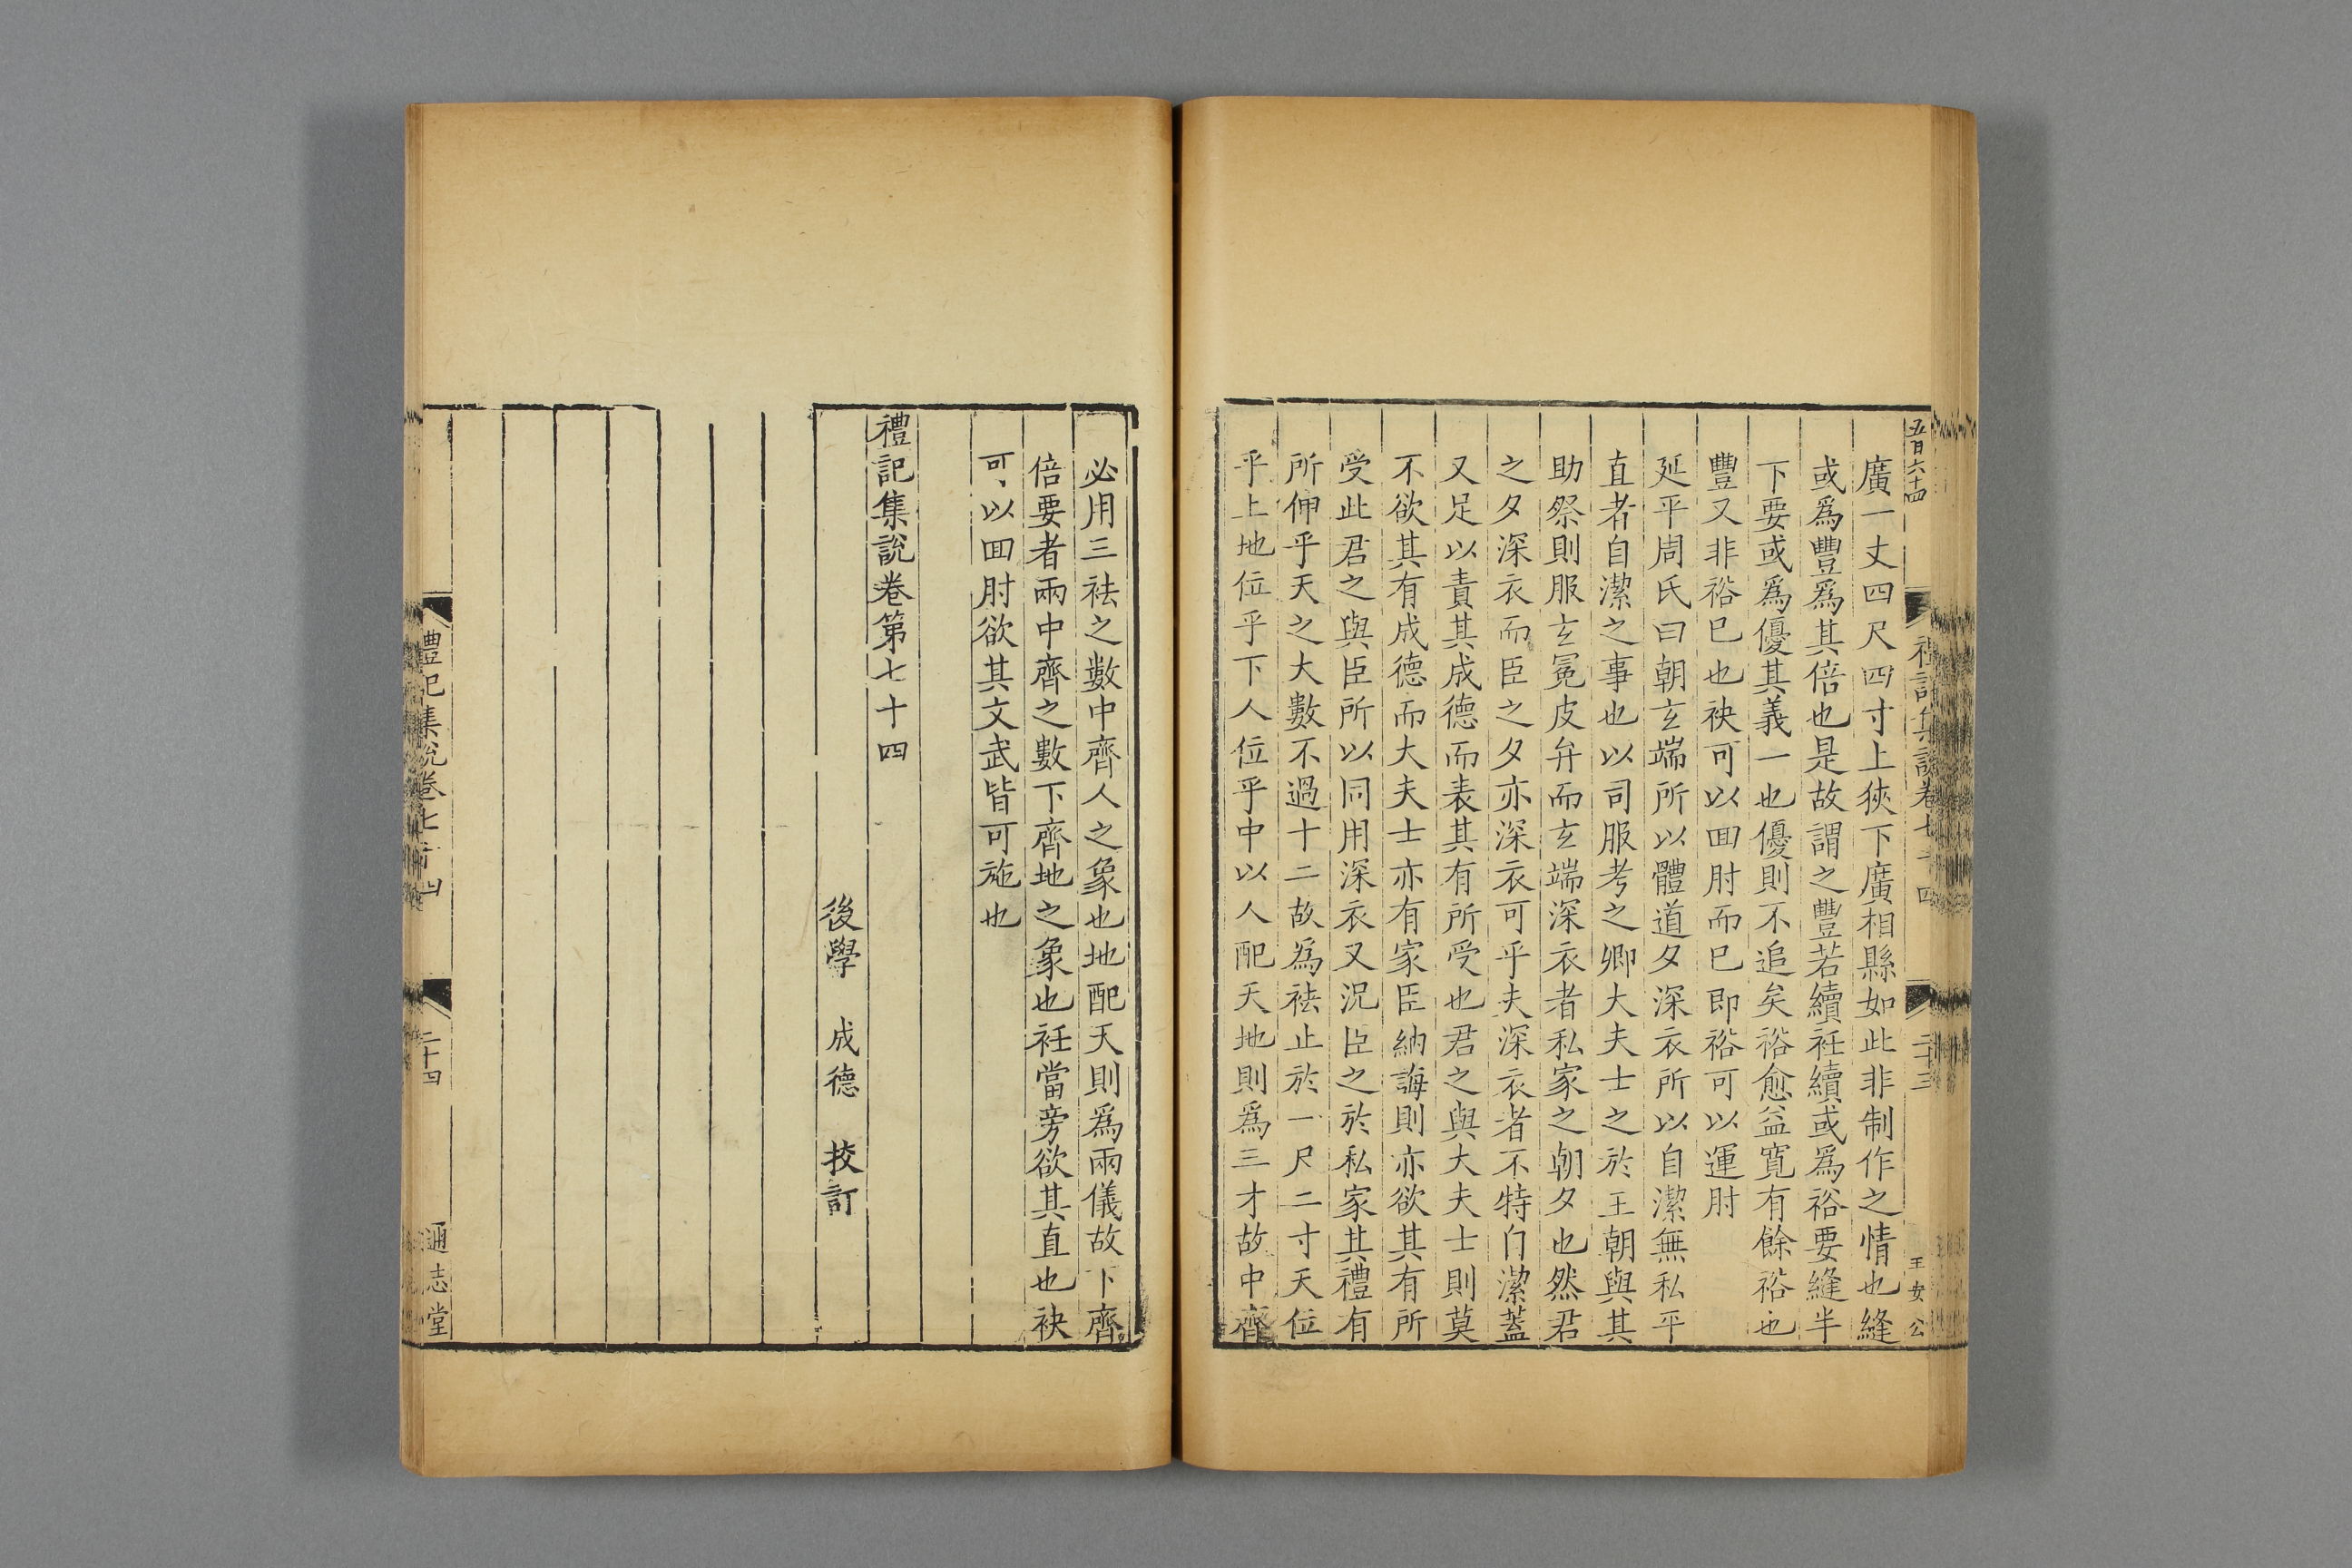 五百六十四
禮記集說卷七十四
二十三
王安公
廣一丈四尺四寸上狹下廣相縣如此非制作之情也縫
或爲豐爲其倍也是故謂之豐若續衽續或爲裕要縫半
下要或爲優其義一也優則不追矣裕愈益寬有餘裕也
豐又非裕巳也袂可以回肘而巳即裕可以運肘
延平周氏曰朝玄端所以體道夕深衣所以自潔無私平
直者自潔之事也以司服考之卿大夫士之於王朝與其
助祭則服玄冕皮弁而玄端深衣者私家之朝夕也然君
之夕深衣而臣之夕亦深衣可乎夫深衣者不特自潔蓋
又足以責其成德而表其有所受也君之與大夫士則莫
不欲其有成德而大夫士亦有家臣納誨則亦欲其有所
受此君之與臣所以同用深衣又況臣之於私家其禮有
所伸乎天之大數不過十二故為袪止於一尺二寸天位
乎上地位乎下人位乎中以人配天地則爲三才故中齊
必用三袪之數中齊人之象也地配天則爲兩儀故下齊
倍要者兩中齊之數下齊地之象也衽當旁欲其直也袂
可以回肘欲其文武皆可施也
禮記集說卷第七十四
後學 成德 挍訂
禮記集說卷七十四
二十四
通志堂